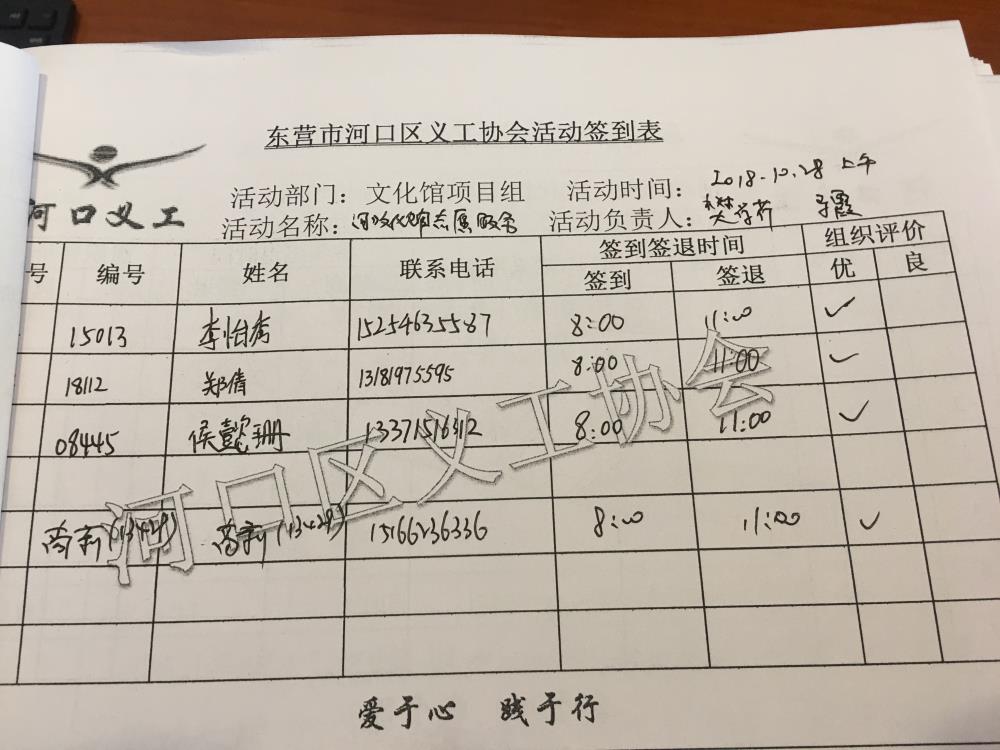 东营市河口区义工协会活动签到表
河口义工
活动部门：文化馆项目组 活动时间：2018.10.28 上午
活动名称：河口文化馆志愿服务 活动负责人：
号 编号 姓名 联系电话 签到签退时间 组织评价
签到 签退 优 良
15013 李怡 15254635587 8:00 11:00 ✓
18112 郑倩 13181975595 8:00 11:00 ✓
08445 侯懿珊 13371516312 8:00 11:00 ✓
(134293) (134293) 15166236336 8:00 11:00 ✓
河口区义工协会
爱于心 践于行